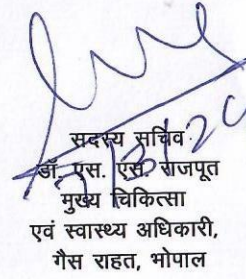 सदस्य सचिव
डॉ. एस. एस. राजपूत
मुख्य चिकित्सा
एवं स्वास्थ्य अधिकारी,
गैस राहत, भोपाल